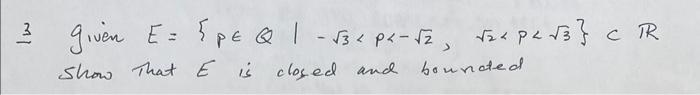 3 given E = { p ∈ Q | -√3 < p < -√2, √2 < p < √3 } ⊂ ℝ
show that E is closed and bounded